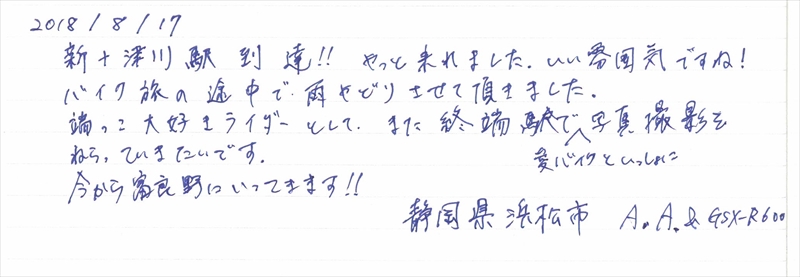 2018/8/17
新十深川駅 到達!! やっと来れました。いい雰囲気ですね!
バイク旅の途中で雨やどりさせて頂きました。
端っこ大好きライダーとして、また終端駅で写真撮影を
愛バイクといっしょに
ねらっていきたいです。
今から富良野にいってきます!!
静岡県浜松市 A.A.& GSX-R600